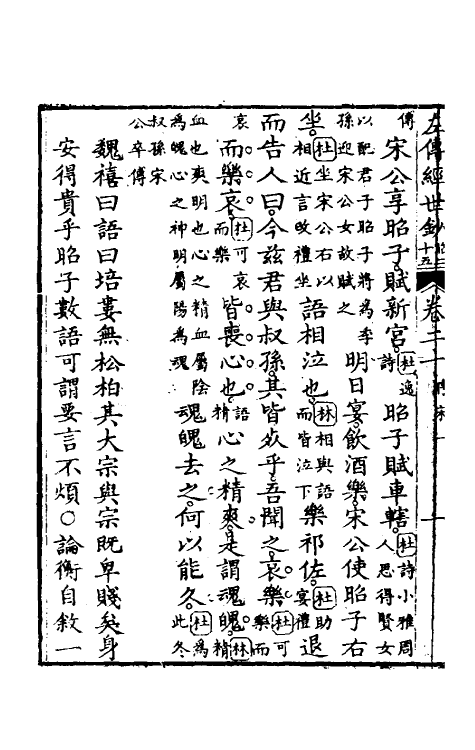 左傳經世鈔 十五 卷二十 十
傳 宋公享昭子賦新宮杜逸詩昭子賦車轄杜詩小雅周人思得賢女
以配君子昭子將為季孫迎宋公女故賦之明日宴飲酒樂宋公使昭子右
坐杜坐宋公右以相近言改禮坐語相泣也林相與語而皆泣下樂祁佐杜助宴禮退
而告人曰今茲君與叔孫其皆死乎吾聞之哀樂杜可樂而
哀而樂哀杜可哀而樂皆喪心也語精心之精爽是謂魂魄林精
血也爽明也心之精血屬陰為魄心之神明屬陽為魂魂魄去之何以能久杜為此冬
叔孫宋公卒傳
魏禧曰語曰培婁無松柏其大宗與宗既卑賤矣身
安得貴乎昭子數語可謂要言不煩○論衡自敘一